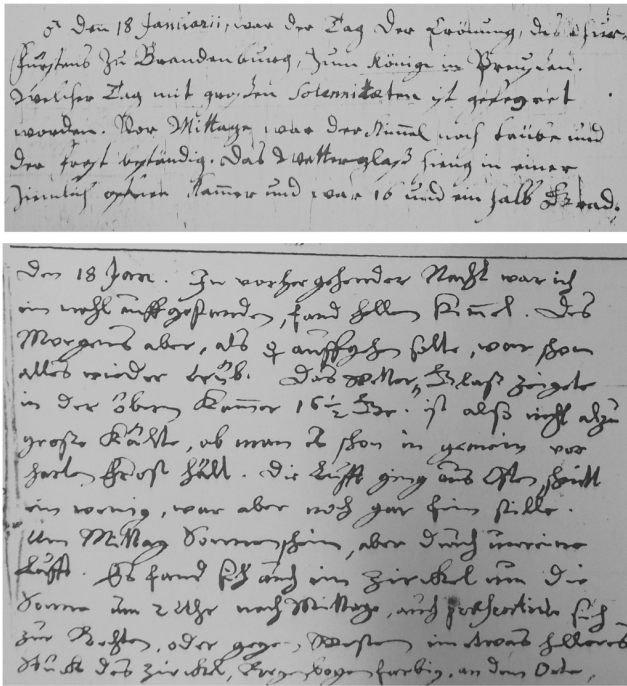 ♂ den 18 Januarii, war der Tag der Crönung, des Chur-
fürstens zu Brandenburg, zum Könige in Preußen.
Welcher Tag mit großen Solennitaten ist gefeyret
worden. Vor Mittage war der Himmel noch trübe und
der frost beständig. Das Wetterglaß hieng in einer
ziemlich offenen Kammer und war 16 und ein halb Grad.
Den 18 Jan. In vorhergehender Nacht war ich
ein mahl auffgestanden, fand hellen Himmel. Des
Morgens aber, als ☿ auffgehen solte, war schon
alles wieder trüb. Das Wetter Glaß zeigete
in der öbern Kammer 16½ Gr. ist alß nicht alzu
große Kälte, ob man es schon in gemein vor
harten Frost hält. Die Lufft ging aus Osten,
ein wenig, war aber noch gar fein stille.
Um Mittag Sonnenschein, aber durch unreine
Lufft. Es fand sich auch ein Zirckel um die
Sonne um 2 Uhr nach Mittage, auch sich
zur Rechten, oder gegen Westen ein etwas helleres
Stück des Zirckel, Regenbogenfarbig, an dem Orte,